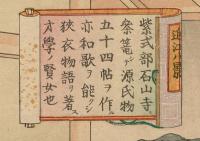 近江八景
紫式部石山寺
祭篭ヶ源氏物
五十四帖ヲ作
亦和歌ヲ能クシ
狭衣物語ヲ著ス
才學ノ賢女也